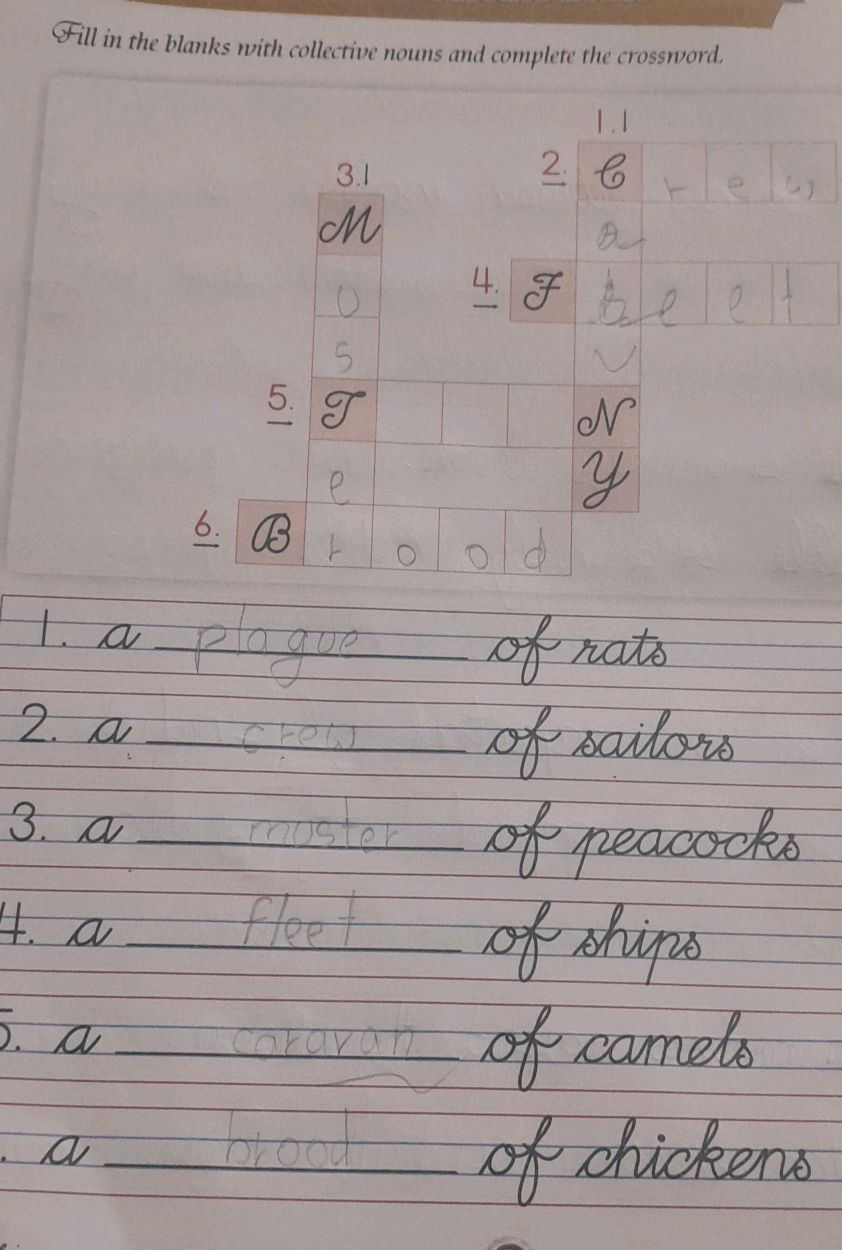 Fill in the blanks with collective nouns and complete the crossword.
1.
2. C r e w
3.
M a
4. F l e e t
u
s v
5. T N
e Y
6. B r o o d
1. a plague of rats
2. a crew of sailors
3. a muster of peacocks
4. a fleet of ships
5. a caravan of camels
. a brood of chickens